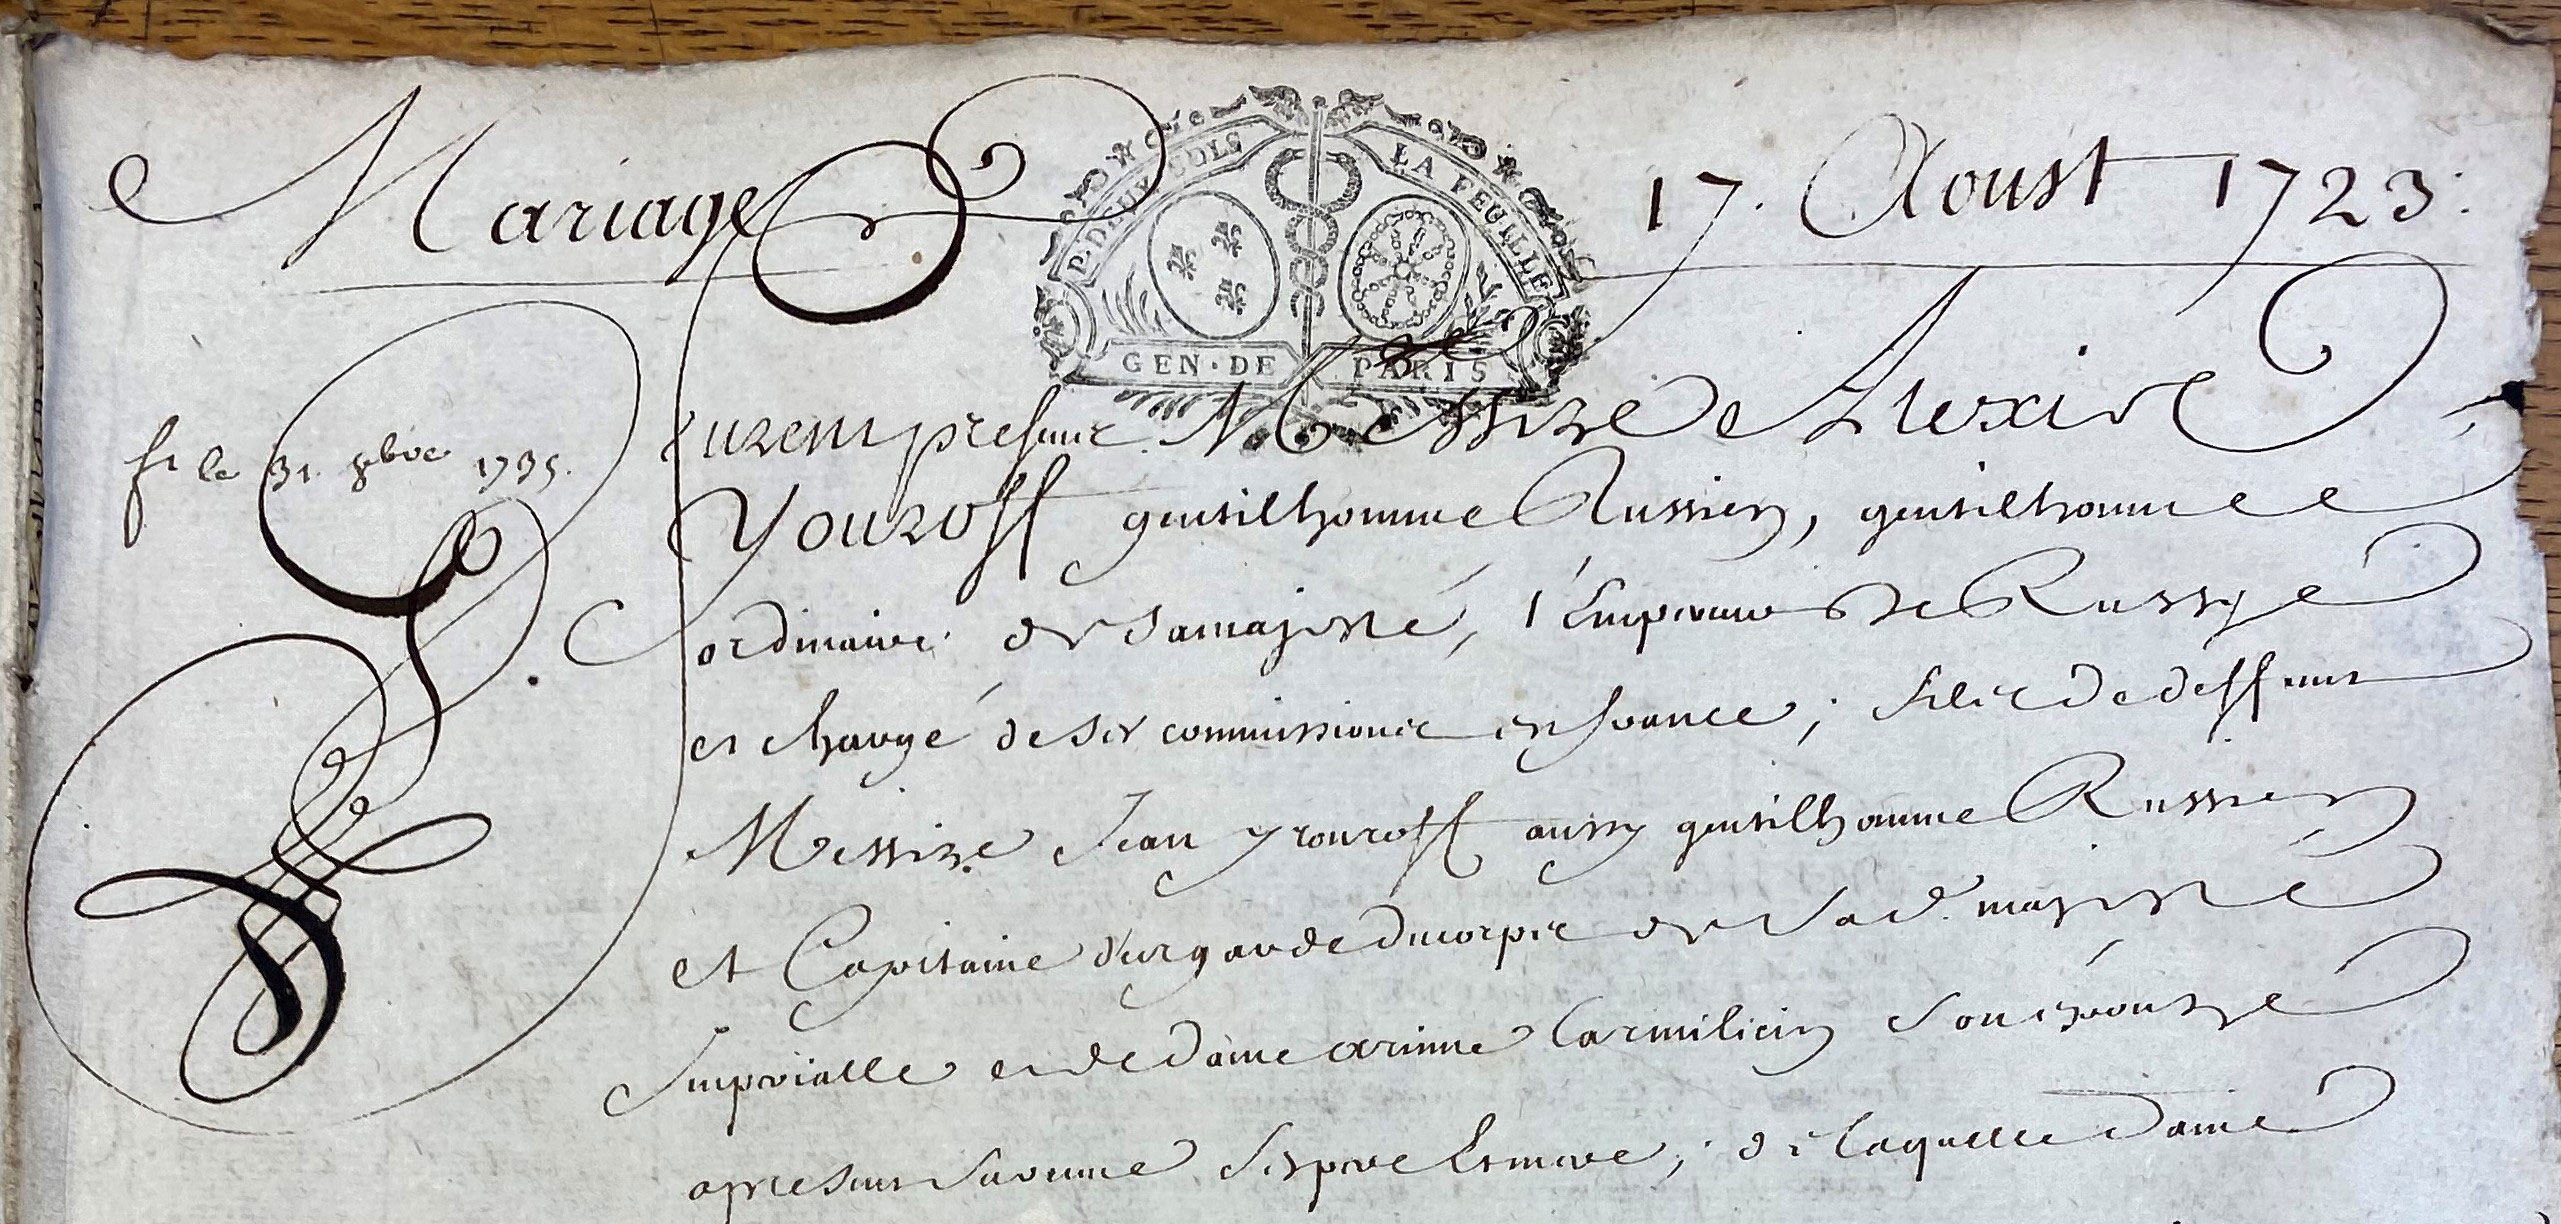 Mariage
17. Aoust 1723.
P. DEUX SOLS LA FEUILLE
GEN. DE PARIS
f. le 31. 8bre 1735.
Furent presens Messire Alexis
Youroff gentilhomme Russien, gentilhomme
ordinaire de Sa majesté, l'Empereur de Russye
et chargé de ses commissions en france; fils de deffunt
Messire Jean yrouroff aussy gentilhomme Russien
et Capitaine d'un garde du corps de Sad. majesté
Imperialle et de Dame arinne Carmilien son epouse
apresent sa veuve ses pere et mere; de laquelle dame